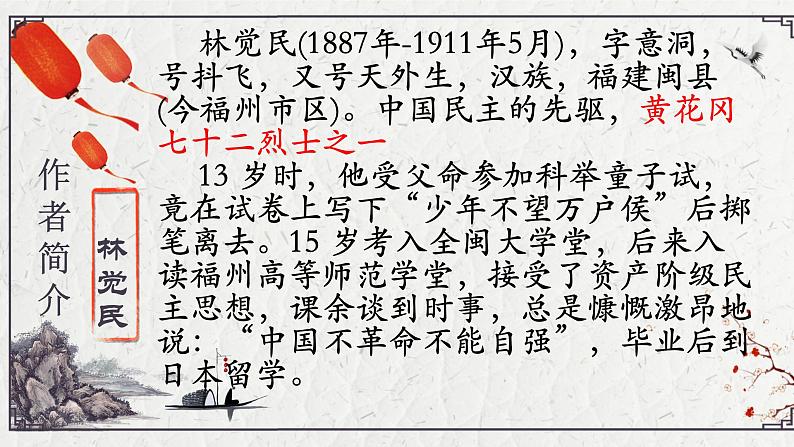 作者简介
林觉民
林觉民(1887年-1911年5月)，字意洞，
号抖飞，又号天外生，汉族，福建闽县
(今福州市区)。中国民主的先驱，黄花冈
七十二烈士之一
13 岁时，他受父命参加科举童子试，
竟在试卷上写下“少年不望万户侯”后掷
笔离去。15 岁考入全闽大学堂，后来入
读福州高等师范学堂，接受了资产阶级民
主思想，课余谈到时事，总是慷慨激昂地
说：“中国不革命不能自强”，毕业后到
日本留学。